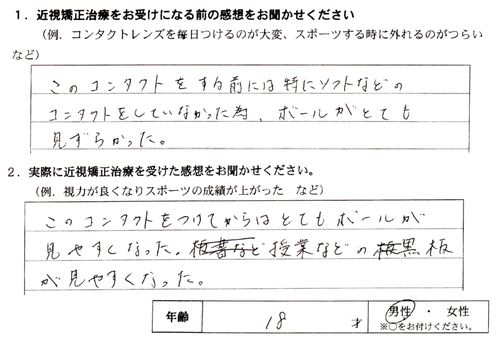 1．近視矯正治療をお受けになる前の感想をお聞かせください
（例．コンタクトレンズを毎日つけるのが大変、スポーツする時に外れるのがつらい
など）
このコンタクトをする前には特にソフトなどの
コンタクトをしていなかった為、ボールがとても
見ずらかった。
2．実際に近視矯正治療を受けた感想をお聞かせください。
（例．視力が良くなりスポーツの成績が上がった　など）
このコンタクトをつけてからはとてもボールが
見やすくなった。板書など授業などの板黒板
が見やすくなった。
年齢　18　才　男性　・　女性
※○をお付けください。